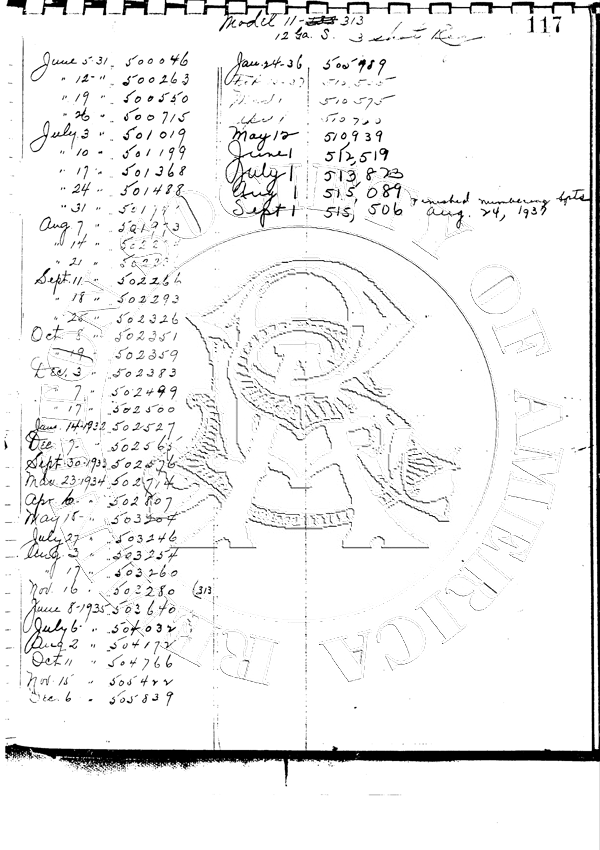 117
Model 11- 313
12 Ga. S. 3 shot
June 5-31 500046
" 12- " 500263
" 19 " 500550
" 26 " 500715
July 3 " 501019
" 10 " 501199
" 17 " 501368
" 24 " 501488
" 31 "
Aug 7 " 501973
" 14 "
" 21 "
Sept. 11 " 502266
" 18 " 502293
" 502326
Oct 8 " 502351
" 19 502359
Dec. 3 " 502383
" 7 " 502499
" 17 " 502500
Jan. 14-1932 502527
Dec 7 - 502565
Sept 30-1933 502576
Mar 23-1934 502714
Apr 16 " 502807
May 15 - 503204
July 27 " 503246
Aug 3 " 503254
" 17 " 503260
Nov. 16 " 503280 (313
June 8-1935 503640
July 6 " 504032
Aug 2 " 504172
Oct 11 " 504766
Nov. 15 " 505422
Dec. 6 " 505839
Jan-24-36 505989
510575
May 12 510939
June 1 512,519
July 1 513,873
Aug 1 515,089
Sept 1 515,506
Finished numbering
Aug. 24, 1937
SOCIETY OF AMERICA
R